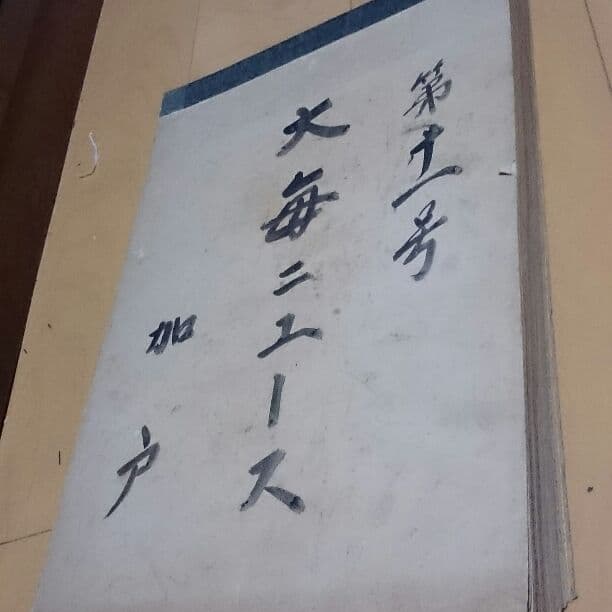 第十一号
大毎ニユース
加戸